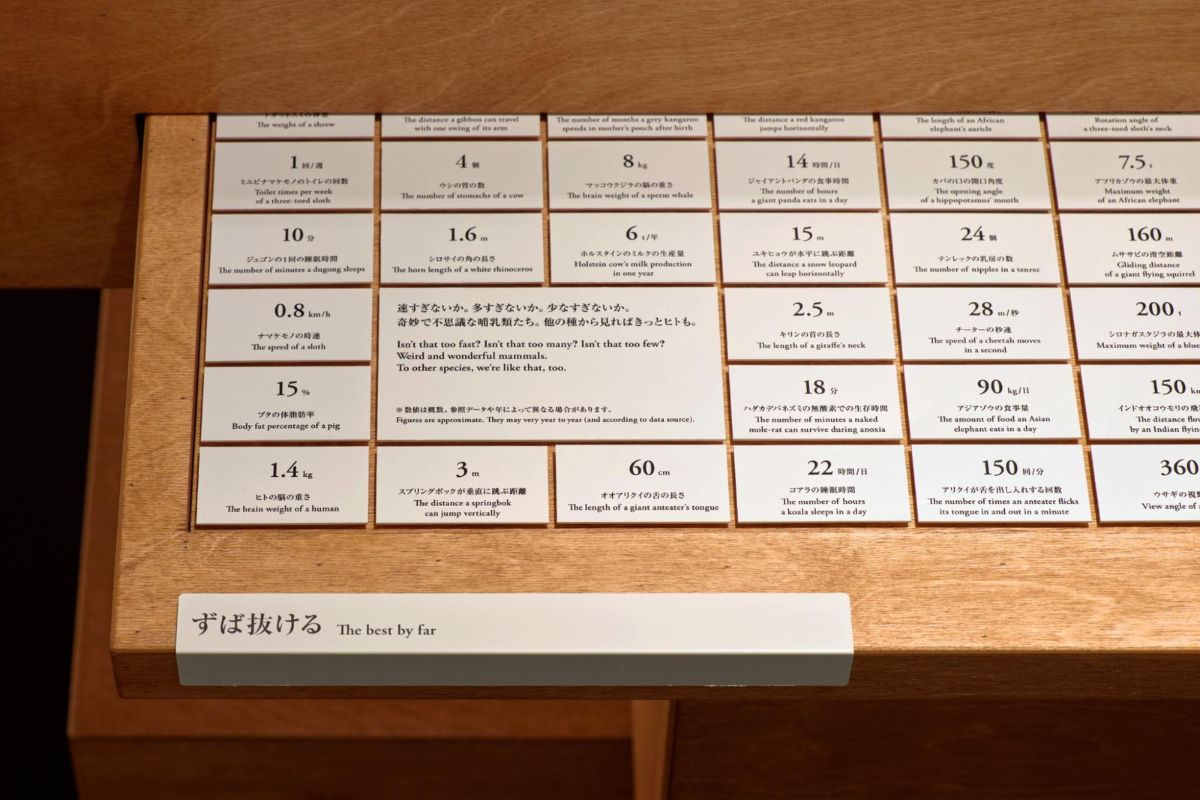 The weight of a shrew
The distance a gibbon can travel
with one swing of its arm
The number of months a grey kangaroo
spends in mother's pouch after birth
The distance a red kangaroo
jumps horizontally
The length of an African
elephant's auricle
Rotation angle of
a three-toed sloth's neck
1 回/週
ミユビナマケモノのトイレの回数
Toilet times per week
of a three-toed sloth
4 個
ウシの胃の数
The number of stomachs of a cow
8 kg
マッコウクジラの脳の重さ
The brain weight of a sperm whale
14 時間/日
ジャイアントパンダの食事時間
The number of hours
a giant panda eats in a day
150 度
カバの口の開口角度
The opening angle
of a hippopotamus' mouth
7.5 t
アフリカゾウの最大体重
Maximum weight
of an African elephant
10 分
ジュゴンの1回の睡眠時間
The number of minutes a dugong sleeps
1.6 m
シロサイの角の長さ
The horn length of a white rhinoceros
6 t/年
ホルスタインのミルクの生産量
Holstein cow's milk production
in one year
15 m
ユキヒョウが水平に跳ぶ距離
The distance a snow leopard
can leap horizontally
24 個
テンレックの乳房の数
The number of nipples in a tenrec
160 m
ムササビの滑空距離
Gliding distance
of a giant flying squirrel
0.8 km/h
ナマケモノの時速
The speed of a sloth
速すぎないか。多すぎないか。少なすぎないか。
奇妙で不思議な哺乳類たち。他の種から見ればきっとヒトも。
Isn't that too fast? Isn't that too many? Isn't that too few?
Weird and wonderful mammals.
To other species, we're like that, too.
※ 数値は概数。参照データや年によって異なる場合があります。
Figures are approximate. They may very year to year (and according to data source).
2.5 m
キリンの首の長さ
The length of a giraffe's neck
28 m/秒
チーターの秒速
The speed of a cheetah moves
in a second
200 t
シロナガスクジラの最大体
Maximum weight of a blue
15 %
ブタの体脂肪率
Body fat percentage of a pig
18 分
ハダカデバネズミの無酸素での生存時間
The number of minutes a naked
mole-rat can survive during anoxia
90 kg/日
アジアゾウの食事量
The amount of food an Asian
elephant eats in a day
150
インドオオコウモリの飛
The distance
by an Indian
1.4 kg
ヒトの脳の重さ
The brain weight of a human
3 m
スプリングボックが垂直に跳ぶ距離
The distance a springbok
can jump vertically
60 cm
オオアリクイの舌の長さ
The length of a giant anteater's tongue
22 時間/日
コアラの睡眠時間
The number of hours
a koala sleeps in a day
150 回/分
アリクイが舌を出し入れする回数
The number of times an anteater flicks
its tongue in and out in a minute
360
ウサギの視
View angle of
ずば抜ける The best by far